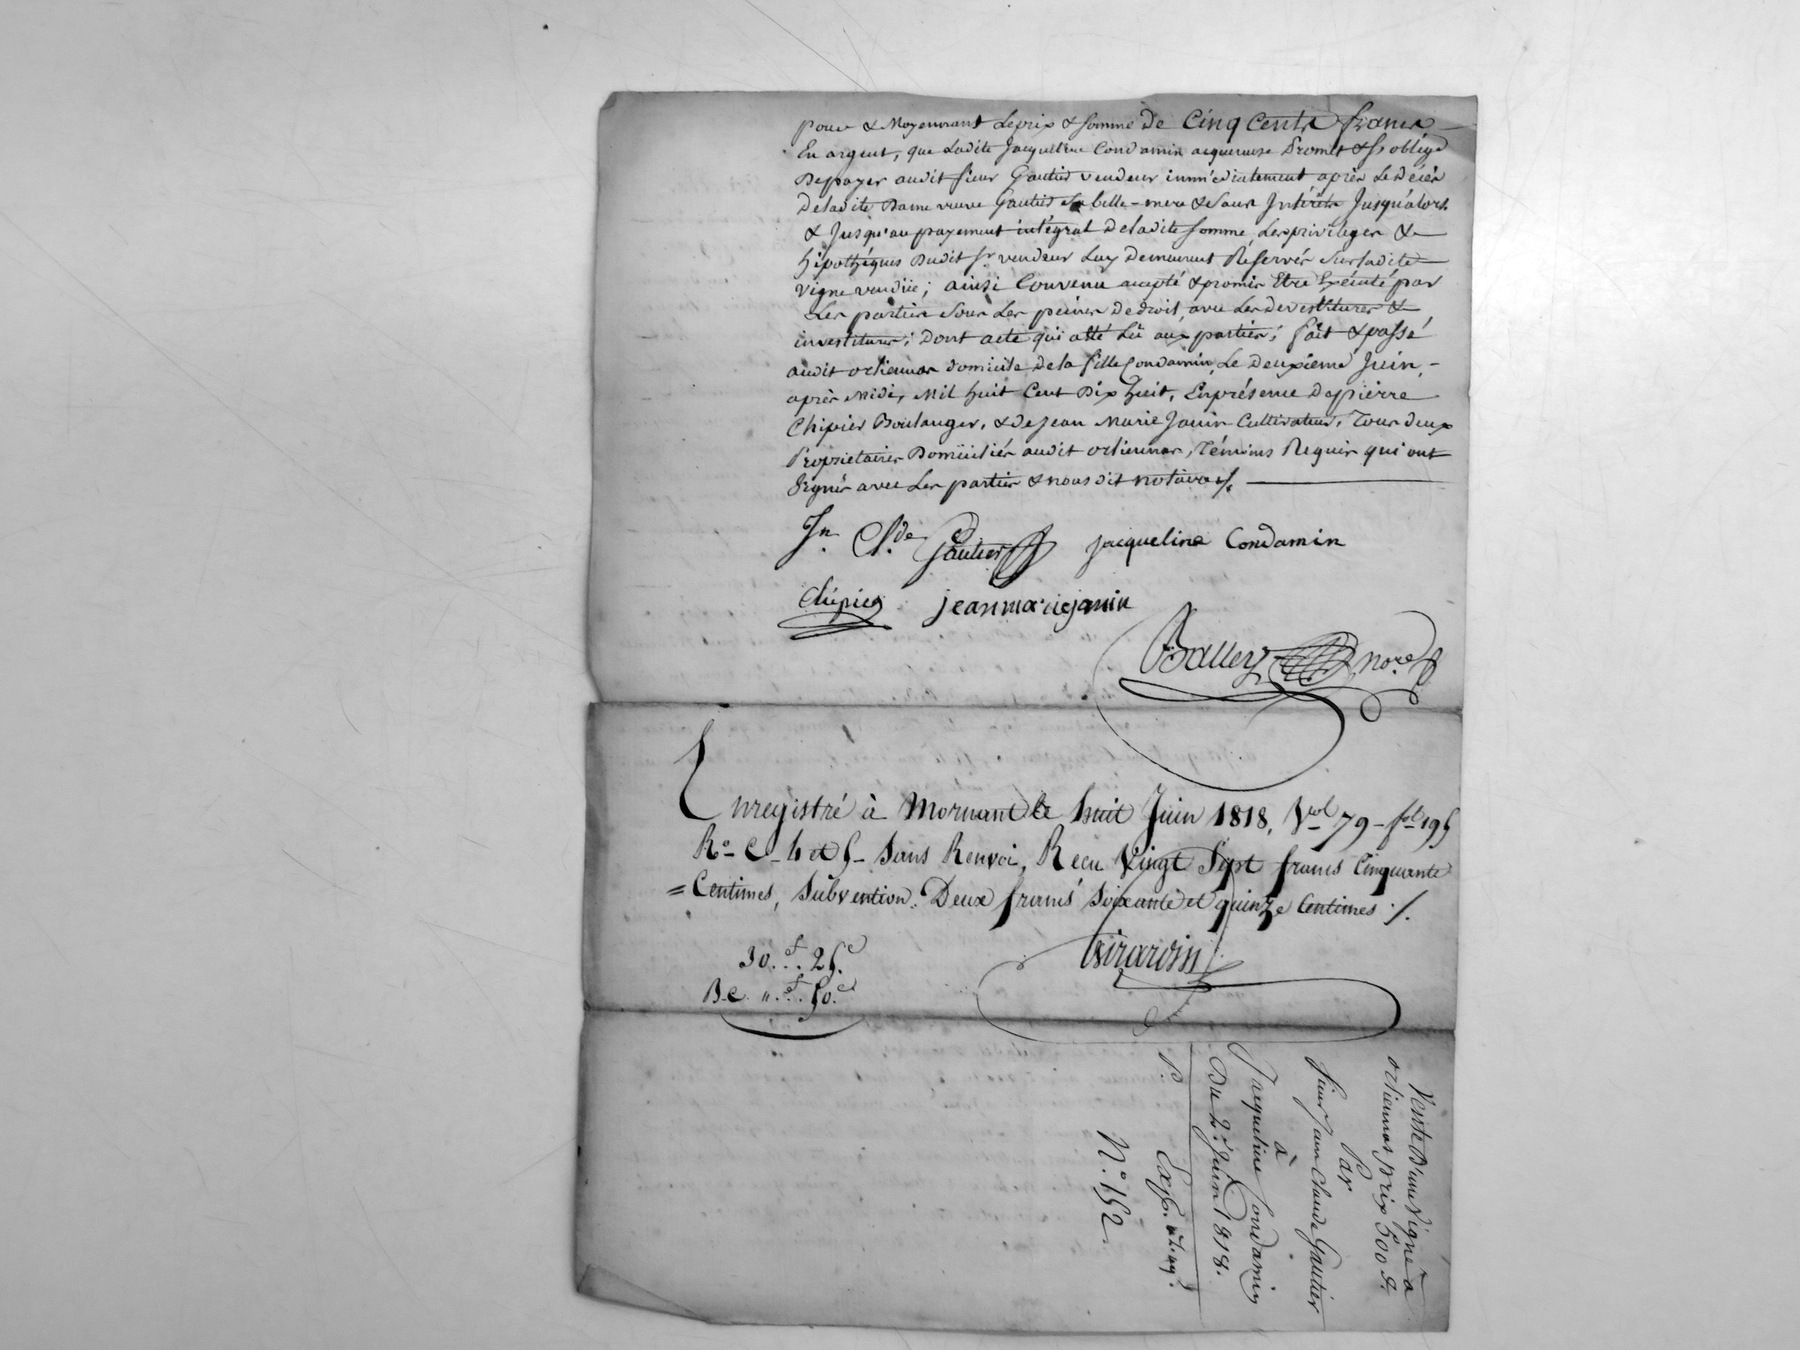 pour & Moyennant Le prix & Somme De Cinq Cents francs
En argent, que Ladite Jacqueline Condamin acquereuse Promet & S'oblige
De payer audit sieur Gautier vendeur immédiatement après Le Décès
De ladite Dame veuve Gautier Sa belle-mere & Sans Intérêts Jusqu'alors
& Jusqu'au payement intégral De ladite Somme, Les privileges &
hipothéques Dudit Sr vendeur Luy Demeurent Reservés Sur ladite
vigne vendüe; ainsi Convenu accepté & promis Etre Exécuté par
Les parties Sous Les peines De droit, avec Les Devestitures &
investitures; Dont acte qui a été Lû aux parties; fait & passé
audit orlienas domicile De la fille Condamin, Le Deuxieme Juin,
après Midi, Mil huit Cent Dix huit, En présence De pierre
Chipier Boulanger, & De Jean Marie Janin Cultivateur, Tous deux
Proprietaires Domiciliés audit orlienas, Témoins Requis qui ont
Signé avec Les parties & nous dit notaire ./.
Jn. Cl.de Gautier jacqueline Condamin
Chipier jean marie janin
Balley nore
Enregistré à Mornant le huit Juin 1818, Vol 79 - fol 195
Ro C. 4 et 5 - Sans Renvoi, Recu Vingt Sept francs Cinquante
= Centimes, Subvention. Deux francs Soixante et quinze Centimes ./.
30.f.. 25.c
B.e. ".f.. 50.c
Girardin
Vente D'une Vigne a
orlienas prix 500 f.
Par
Sieur Jean Claude Gautier
à
Jacqueline Condamin
Du 2e. Juin 1818.
P. Exp.
No. 152.